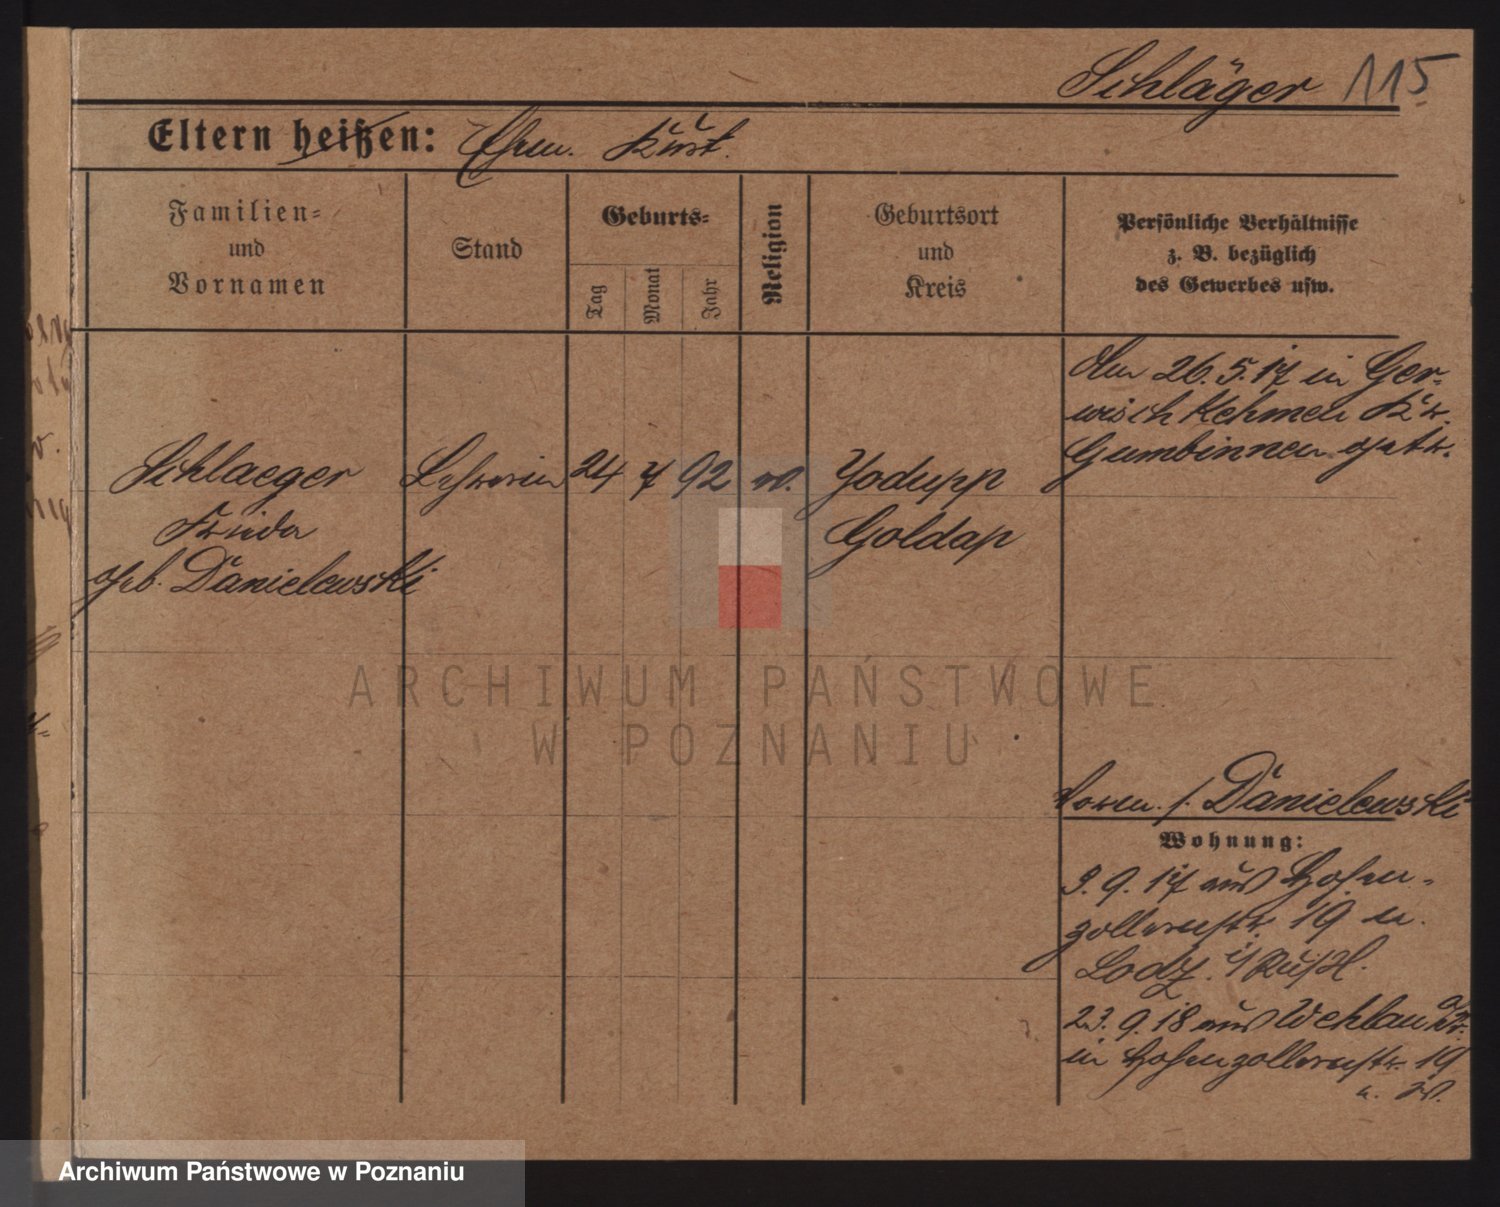 Schläger 115
Eltern heißen: Ehem. Kurt.
Familien-
und
Vornamen
Stand
Geburts-
Tag
Monat
Jahr
Religion
Geburtsort
und
Kreis
Persönliche Verhältnisse
z. B. bezüglich
des Gewerbes usw.
Am 26.5.17 in Ger-
wischkehmen Kr.
Gumbinnen getr.
Schlaeger Lehrerin 24 7 92 ev. Jodupp
Frieda Goldap
geb. Danielewski
Vorm. s. Danielewski
Wohnung:
3.9.17 aus Hohen-
zollernstr. 19 n.
Lodz i/Rußl.
23.9.18 aus Wehlau
in Hohenzollernstr. 19
ARCHIWUM PAŃSTWOWE
W POZNANIU
Archiwum Państwowe w Poznaniu